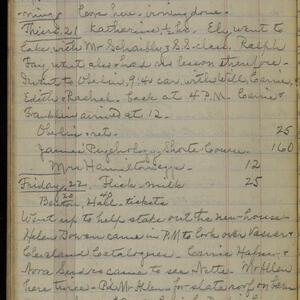 ming. Cora here, ironing done.
Thurs. 21 Katharine ½ hr. Ely went to
Lake with Mr S.S. class. Ralph
Fay went also had no lesson therefore.
I went to Oberlin, 9:40 car, with Will, Carrie,
Edith & Rachel. Back at 4 P.M. Carrie &
Franklin arrived at 12.
Oberlin - ret. 25
James Psychology, Shorter Course 160
Mrs Hamilton eggs 12
Friday, 22 Flick - milk 25
20 40
Hall - tickets
Went up to help stake out the new house.
Helen Bowen came in P.M. to look over Vassar &
Cleveland Catalogues. Carrie &
Nora came to see Nette. Mr Allen
here twice. Pd. Mr Allen for slate roof on barn